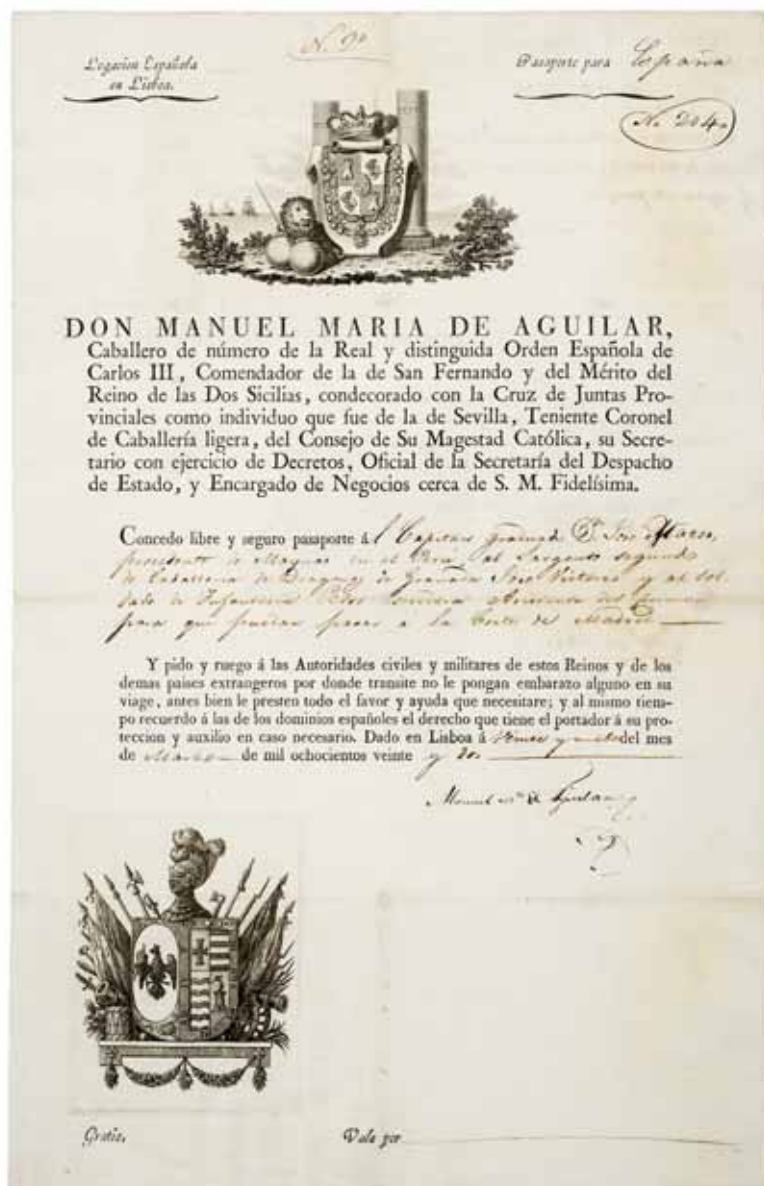 Legacion Española
en Lisboa.
Pasaporte para España
DON MANUEL MARIA DE AGUILAR,
Caballero de número de la Real y distinguida Orden Española de
Carlos III, Comendador de la de San Fernando y del Mérito del
Reino de las Dos Sicilias, condecorado con la Cruz de Juntas Pro-
vinciales como individuo que fue de la de Sevilla, Teniente Coronel
de Caballería ligera, del Consejo de Su Magestad Católica, su Secre-
tario con ejercicio de Decretos, Oficial de la Secretaría del Despacho
de Estado, y Encargado de Negocios cerca de S. M. Fidelísima.
Concedo libre y seguro pasaporte ál Capitan graduado Dn. José
procedente de Maynas en el Perú, al Sargento segundo
de Caballeria de Dragones de Granada José Victorio y al Sol-
dado de Infanteria Pedro
para que puedan pasar a la Corte de Madrid
Y pido y ruego á las Autoridades civiles y militares de estos Reinos y de los
demas paises extrangeros por donde transite no le pongan embarazo alguno en su
viage, antes bien le presten todo el favor y ayuda que necesitare; y al mismo tiem-
po recuerdo á las de los dominios españoles el derecho que tiene el portador á su pro-
teccion y auxilio en caso necesario. Dado en Lisboa á del mes
de Marzo de mil ochocientos veinte y dos
Manuel Ma. de Aguilar
Gratis.
Vale por